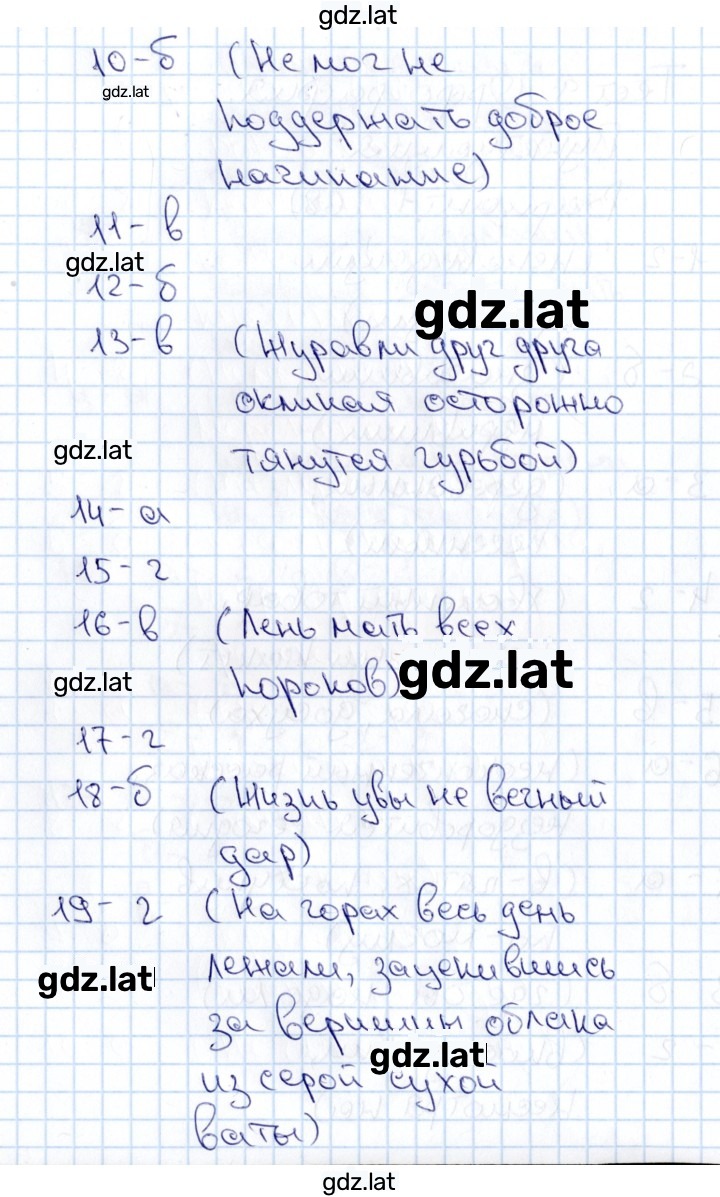 gdz.lat
10-б (Не мог не
gdz.lat
поддержать доброе
начинание)
11-в
gdz.lat
12-б
gdz.lat
13-в (Журавли друг друга
окликая осторожно
gdz.lat
тянутся гурьбой)
14-а
15-г
16-в (Лень мать всех
gdz.lat
пороков) gdz.lat
17-г
18-б (Жизнь увы не вечный
дар)
19-г (На горах весь день
лежали, зацепившись
gdz.lat
за вершины облака
gdz.lat
из серой сухой
ваты)
gdz.lat